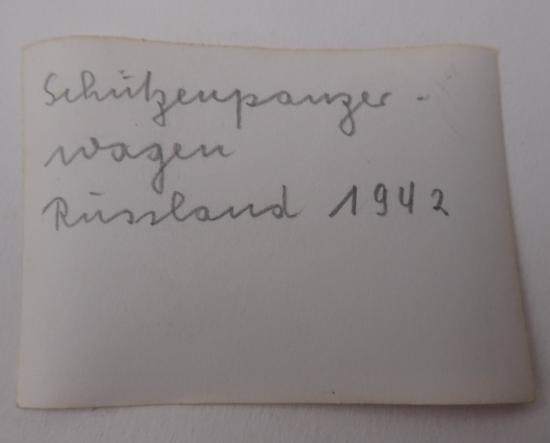 Schützenpanzer-
wagen
Russland 1942